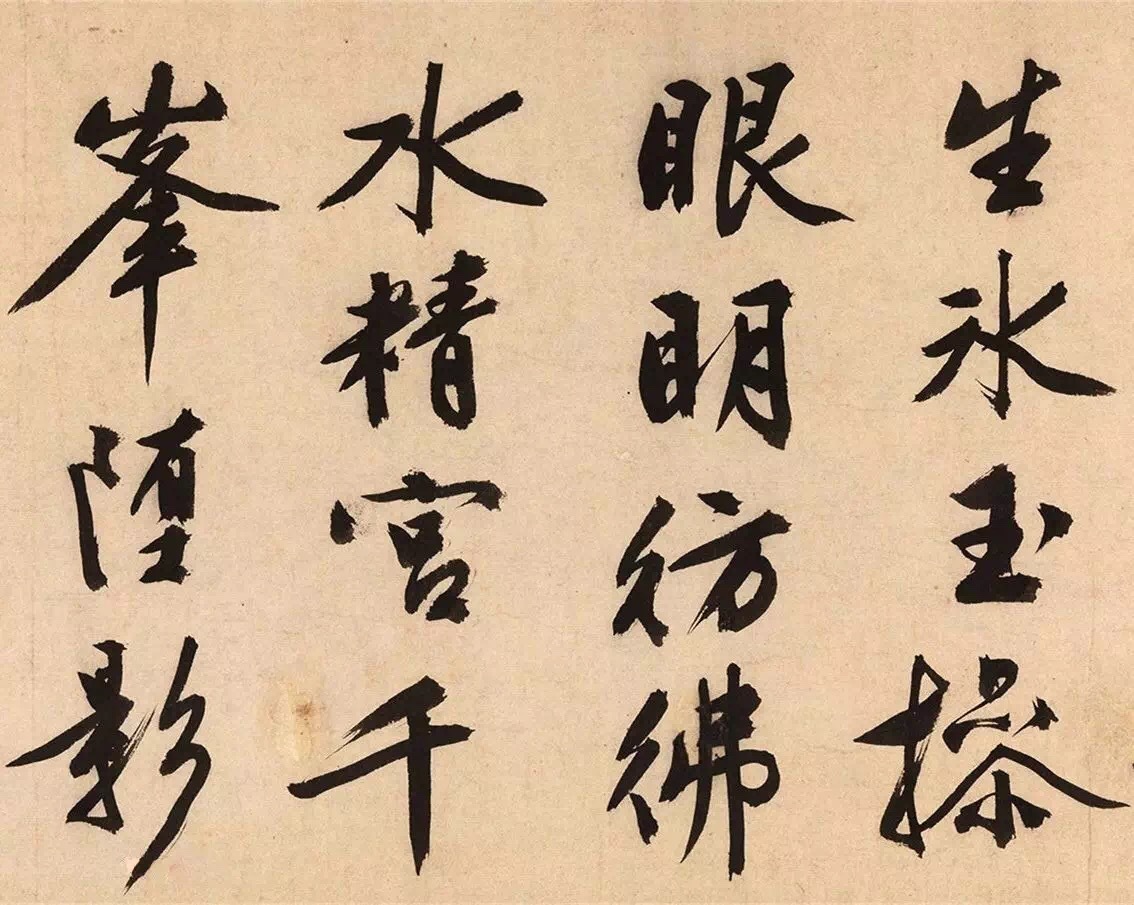 生氷玉操
眼明彷彿
水精宮千
峯堕影